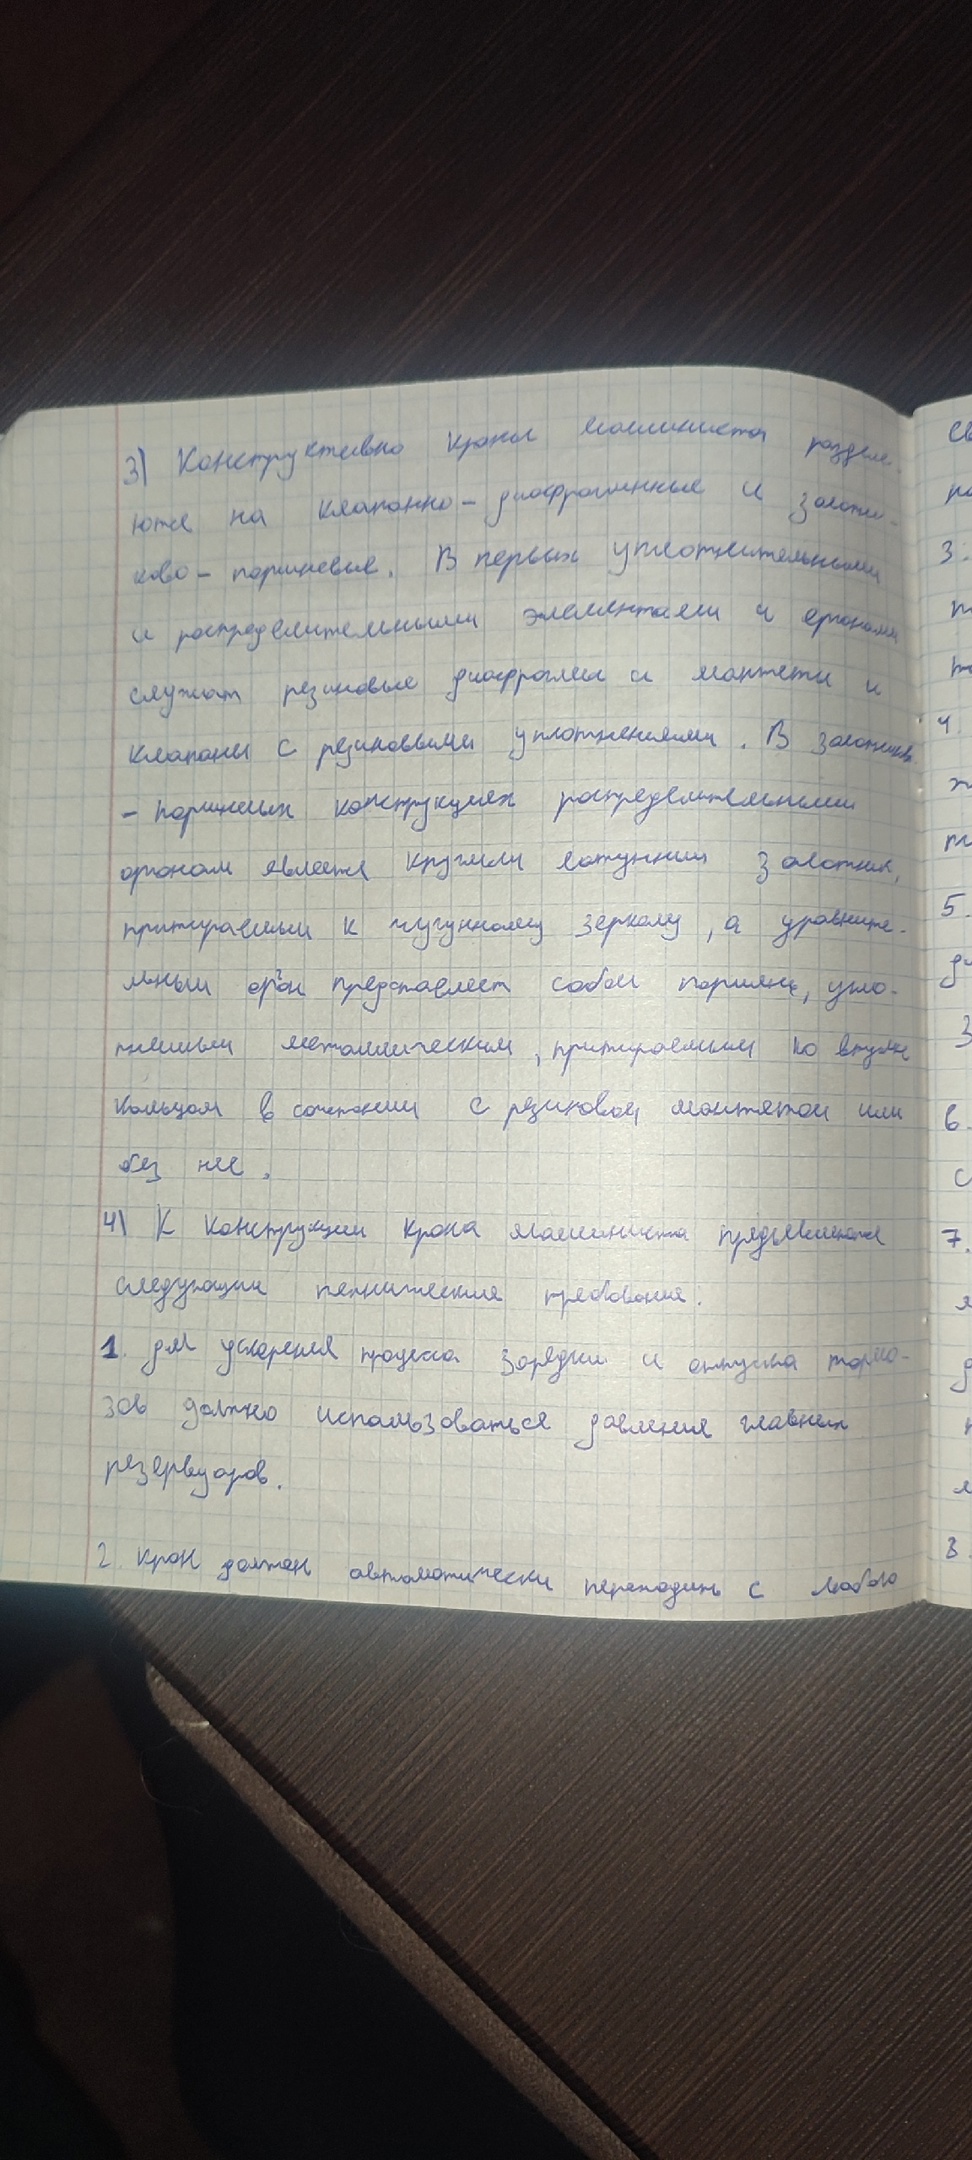 3) Конструктивно краны машиниста разделя-
ются на клапанно-диафрагменные и золотни-
ково-поршневые. В первых уплотнительными
и распределительными элементами и органами
служат резиновые диафрагмы и манжеты и
клапаны с резиновыми уплотнениями. В золотников
-поршневых конструкциях распределительным
органом является круглый латунный золотник,
притираемый к чугунному зеркалу, а уравните-
льный орган представляет собой поршень, упло-
тнённый металлическим, притираемым ко втулке
кольцом в сочетании с резиновой манжетой или
без неё.
4) К конструкции крана машиниста предъявляются
следующие технические требования:
1. для ускорения процесса зарядки и отпуска тормо-
зов должно использоваться давления главных
резервуаров.
2. Кран должен автоматически переходить с любого
3.
4.
5.
6.
7.
8.